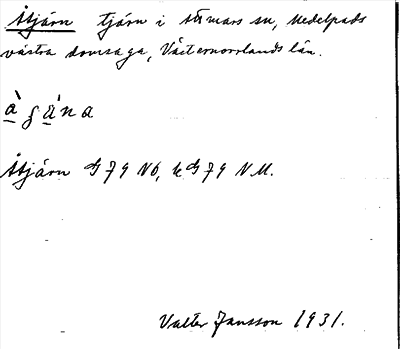 Åtjärn tjärn i Stömars sn, Medelpads
västra domsaga, Västernorrlands län.
à ʃ á n a
Åtjärn G 79 NÖ, k G 79 NV.
Valter Jansson 1931.